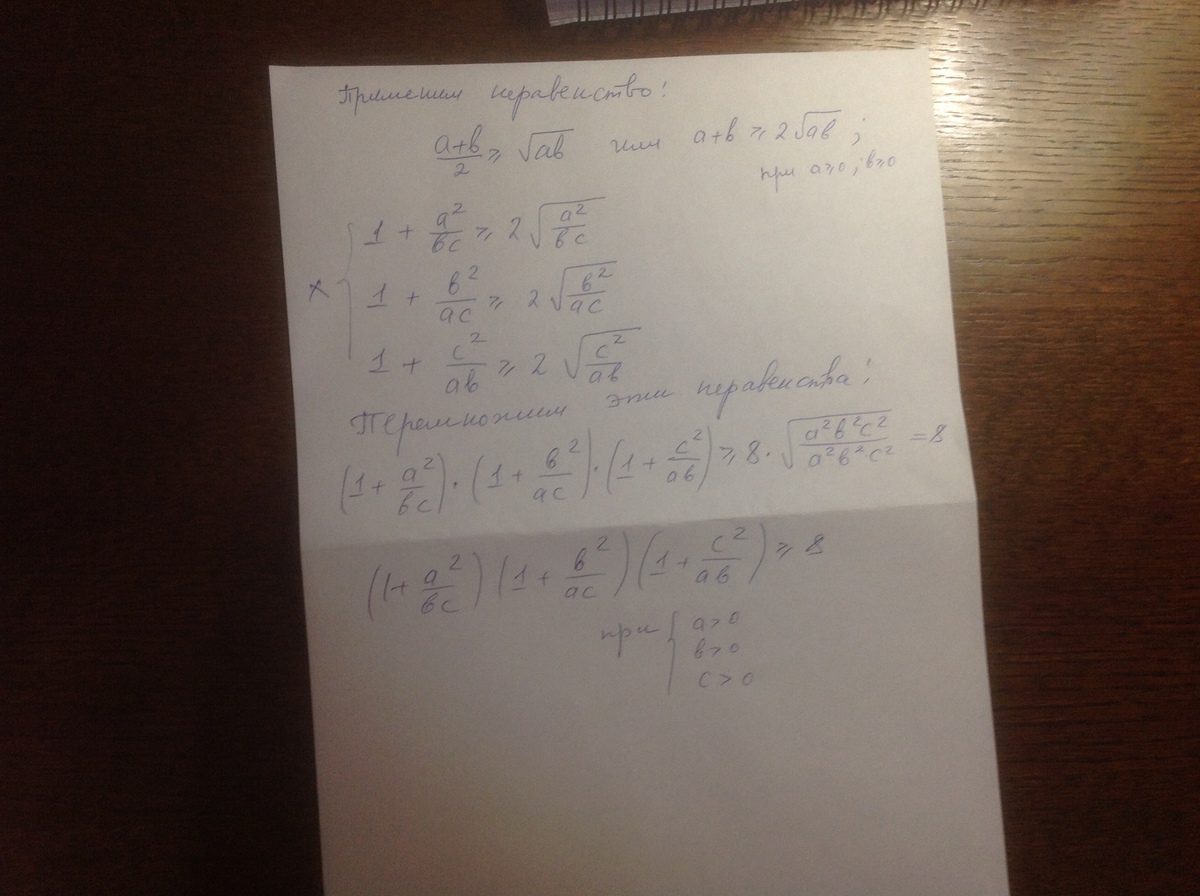 Применим неравенство:
(a+b)/2 ≥ √(ab) или a+b ≥ 2√(ab) ;
при a≥0 ; b≥0
1 + a²/(bc) ≥ 2√(a²/(bc))
× { 1 + b²/(ac) ≥ 2√(b²/(ac))
1 + c²/(ab) ≥ 2√(c²/(ab))
Перемножим эти неравенства:
(1 + a²/(bc)) · (1 + b²/(ac)) · (1 + c²/(ab)) ≥ 8 · √(a²b²c²/(a²b²c²)) = 8
(1 + a²/(bc)) (1 + b²/(ac)) (1 + c²/(ab)) ≥ 8
при { a > 0
b > 0
c > 0